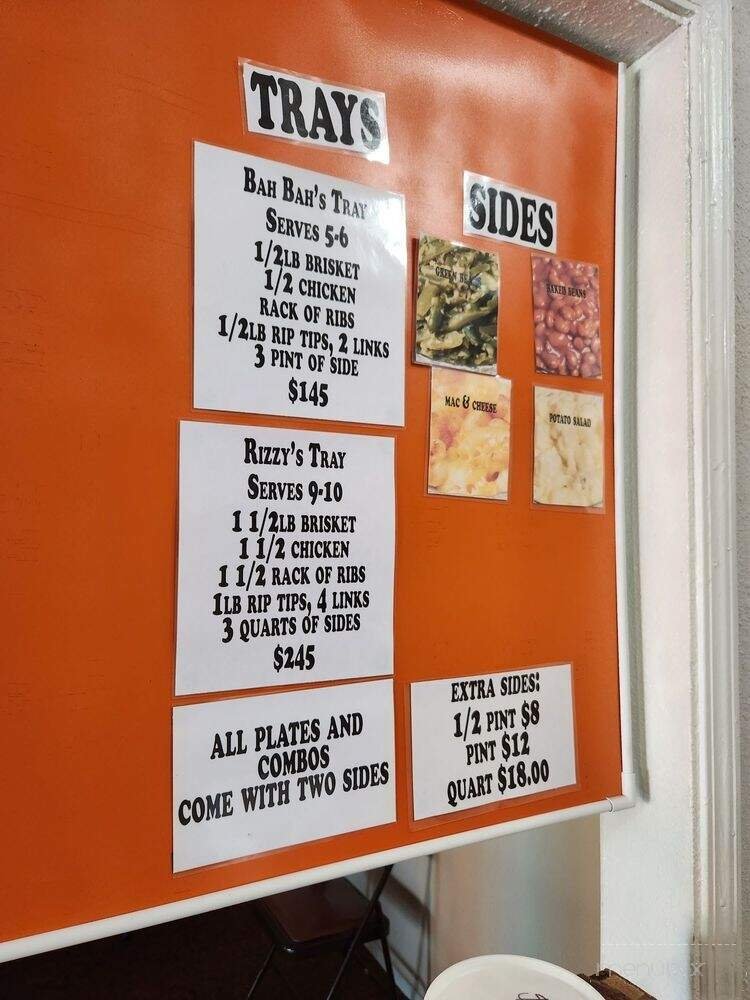 TRAYS
BAH BAH'S TRAY
SERVES 5-6
1/2LB BRISKET
1/2 CHICKEN
RACK OF RIBS
1/2LB RIP TIPS, 2 LINKS
3 PINT OF SIDE
$145
RIZZY'S TRAY
SERVES 9-10
1 1/2LB BRISKET
1 1/2 CHICKEN
1 1/2 RACK OF RIBS
1LB RIP TIPS, 4 LINKS
3 QUARTS OF SIDES
$245
ALL PLATES AND
COMBOS
COME WITH TWO SIDES
SIDES
GREEN BEANS
BAKED BEANS
MAC & CHEESE
POTATO SALAD
EXTRA SIDES:
1/2 PINT $8
PINT $12
QUART $18.00